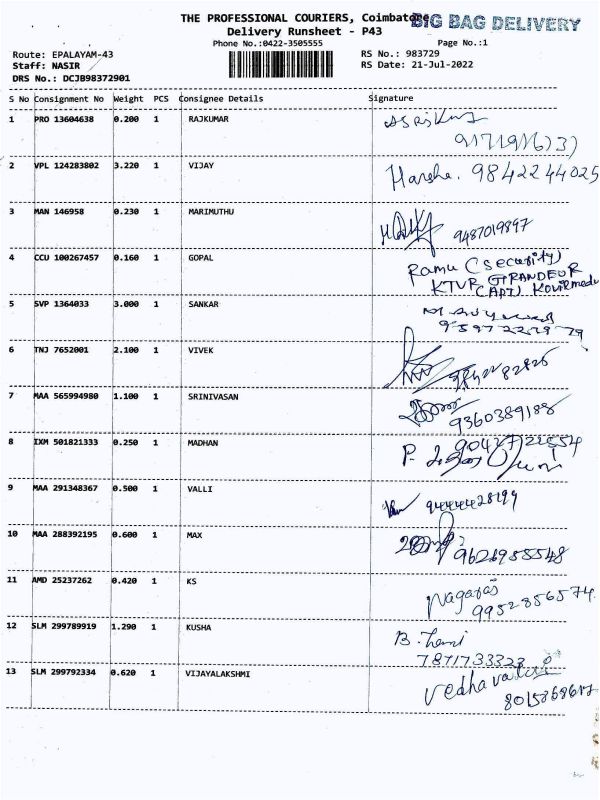 THE PROFESSIONAL COURIERS, Coimbatore
BIG BAG DELIVERY
Delivery Runsheet - P43
Phone No.:0422-3505555
Page No.:1
Route: EPALAYAM-43
RS No.: 983729
Staff: NASIR
RS Date: 21-Jul-2022
DRS No.: DCJB98372901
S No Consignment No Weight PCS Consignee Details Signature
1 PRO 13604638 0.200 1 RAJKUMAR
2 VPL 124283802 3.220 1 VIJAY Harsha. 9842244025
3 MAN 146958 0.230 1 MARIMUTHU
9487019897
4 CCU 100267457 0.160 1 GOPAL Ramu (Security)
KTVR GRANDEUR
(APT) Kovilmedu
5 SVP 1364033 3.000 1 SANKAR
6 TNJ 7652001 2.100 1 VIVEK
7 MAA 565994980 1.100 1 SRINIVASAN
9360389188
8 IXM 501821333 0.250 1 MADHAN
9 MAA 291348367 0.500 1 VALLI
10 MAA 288392195 0.600 1 MAX
9626955548
11 AMD 25237262 0.420 1 KS Nagaraj
9952856574
12 SLM 299789919 1.290 1 KUSHA
7871733323
13 SLM 299792334 0.620 1 VIJAYALAKSHMI